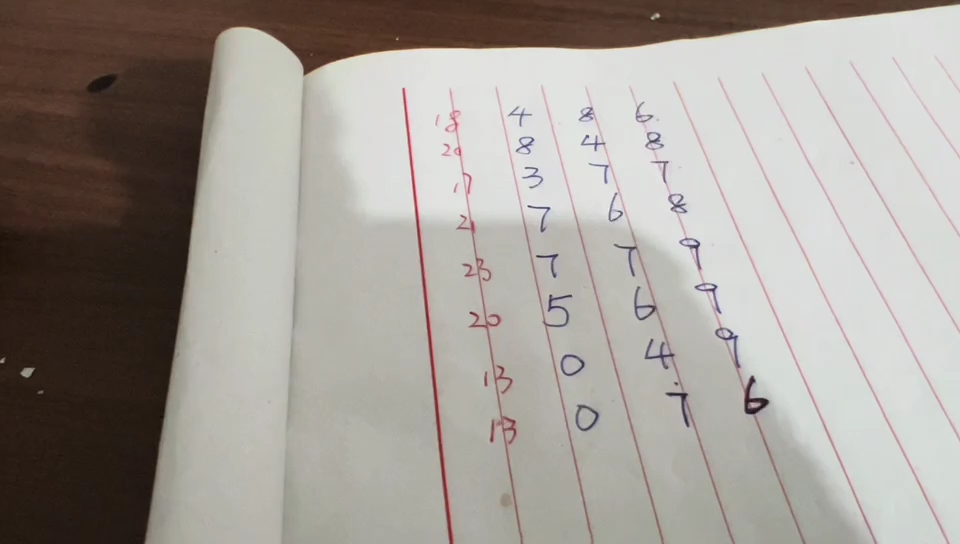 18 4 8 6
20 8 4 8
17 3 7 7
21 7 6 8
23 7 7 9
20 5 6 9
13 0 4 9
13 0 7 6